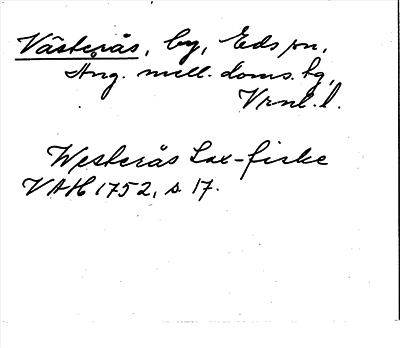 Västerås, by, Eds sn,
Ång. mell. doms. tg,
Vrml. l.
Westerås Lax-fiske
VAH 1752, s. 17.